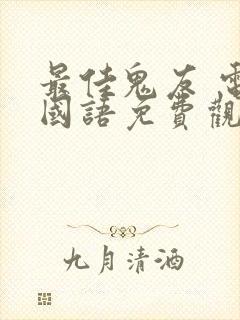 最佳鬼友 電
國語免費觀
九月清酒